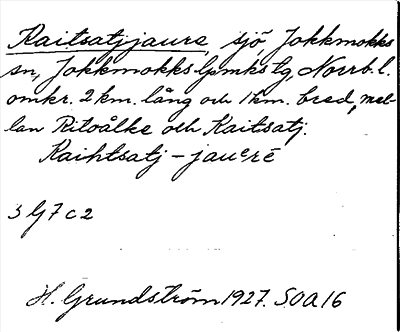 Kaitsatjjaure, sjö, Jokkmokks
sn, Jokkmokks lpmks lg, Norrb. l.
omkr. 2 km. lång och 1 km. bred, mel-
lan Ritoålke och Kaitsatj.
Kaihtsatj - jauᵉrē
3 G 7 c 2
H. Grundström 1927. SOA 16